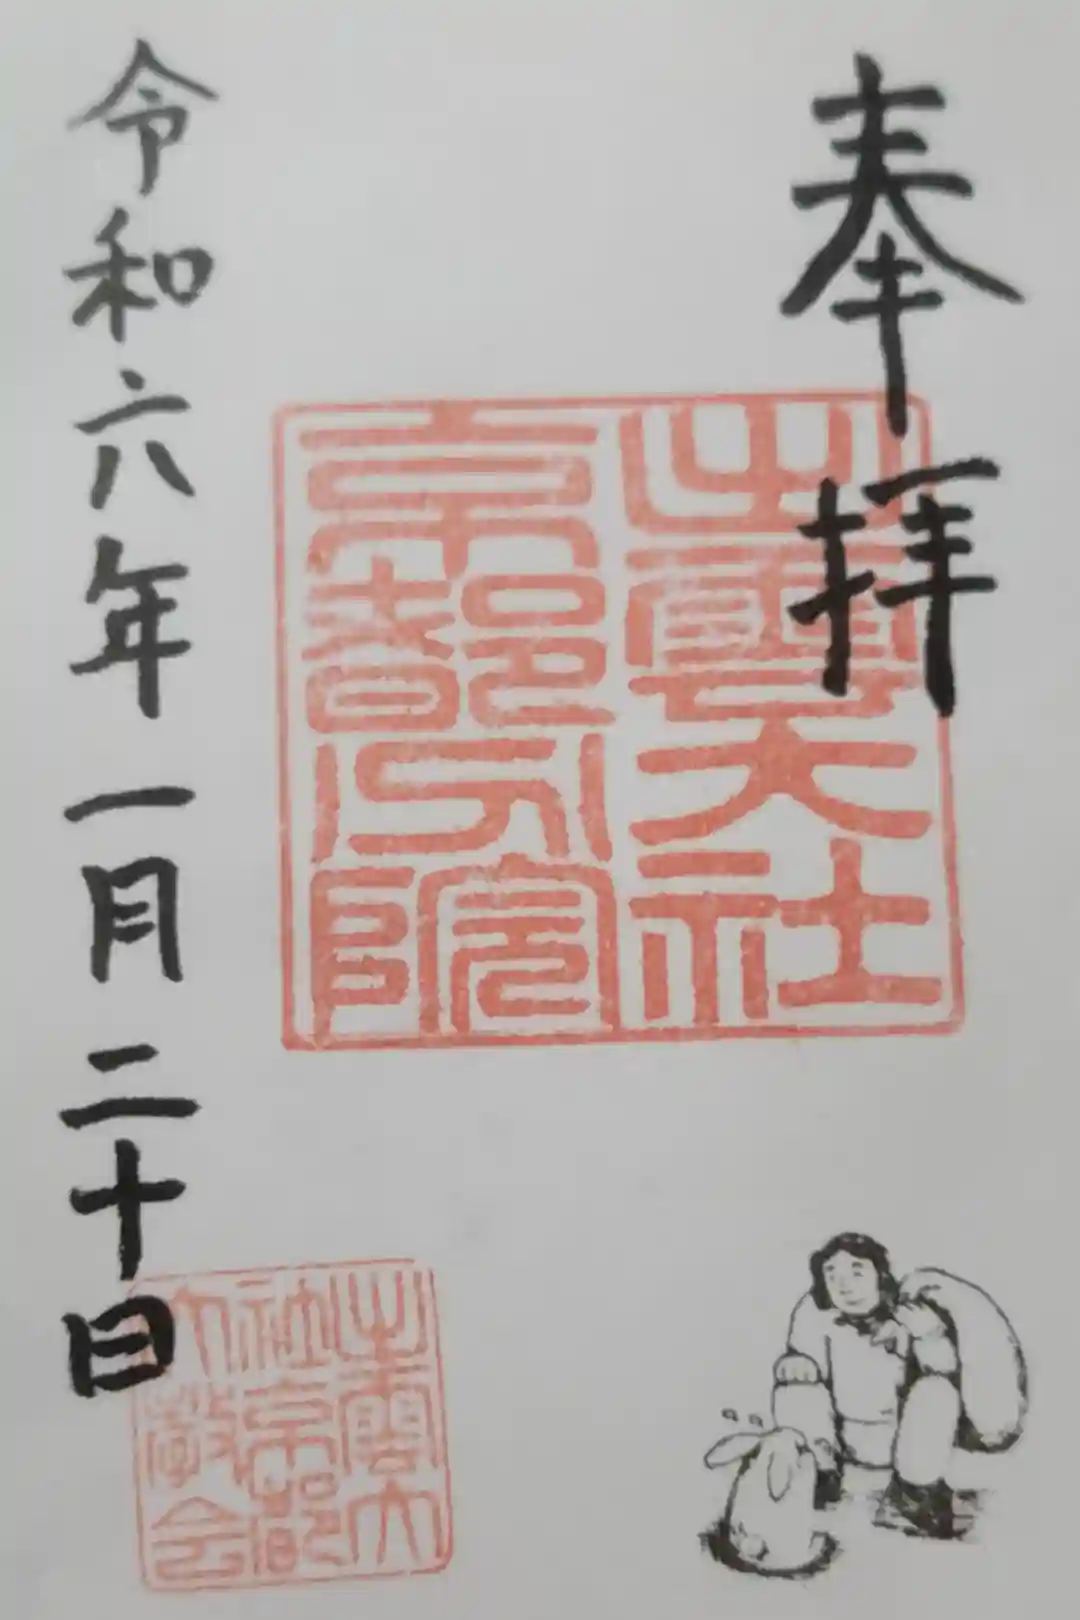 奉拝
出雲大社
京都分院
令和六年一月二十日
出雲大
社京都
分教会